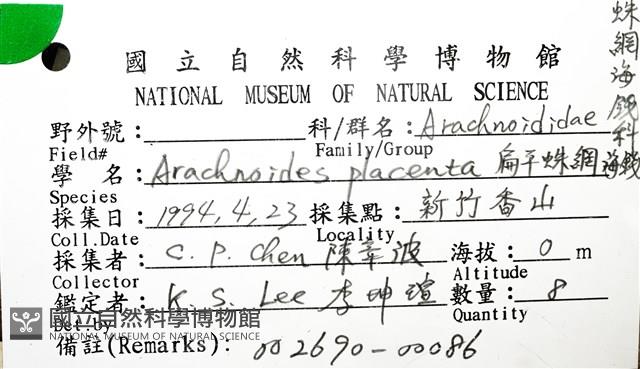 國立自然科學博物館
NATIONAL MUSEUM OF NATURAL SCIENCE
野外號： 科/群名：Arachnoididae 蛛網海錢科
Field# Family/Group
學 名：Arachnoides placenta 扁平蛛網海錢
Species
採集日：1994,4,23 採集點：新竹香山
Coll.Date Locality
採集者：C. P. Chen 陳章波 海拔：0 m
Collector Altitude
鑑定者：K. S. Lee 李坤瑄 數量：8
Det.by Quantity
國立自然科學博物館
NATIONAL MUSEUM OF NATURAL SCIENCE
備註(Remarks)：002690-00086